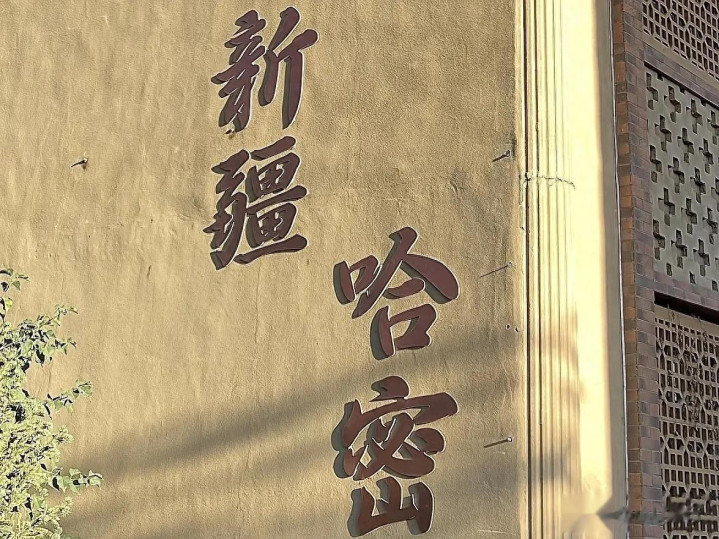 新疆
哈密